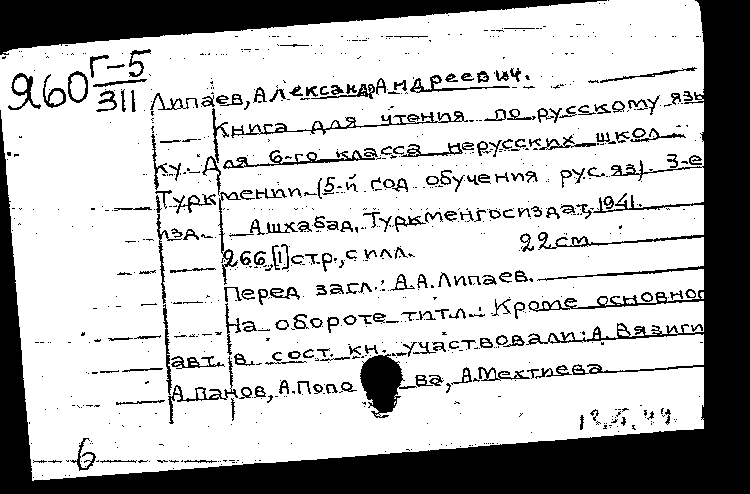 Я60 Г-5
311
Липаев, Александр Андреевич.
Книга для чтения по русскому язы
ку. Для 6-го класса нерусских школ
Туркмении. (5-й год обучения рус. яз). 3-е
изд. Ашхабад, Туркменгосиздат, 1941.
266,[1]стр., с илл. 22 см.
Перед загл.: А.А.Липаев.
На обороте титл.: Кроме основног
авт. в сост. кн. участвовали: А. Вязиги
А.Панов, А.Попо ва, А.Мехтиева
6